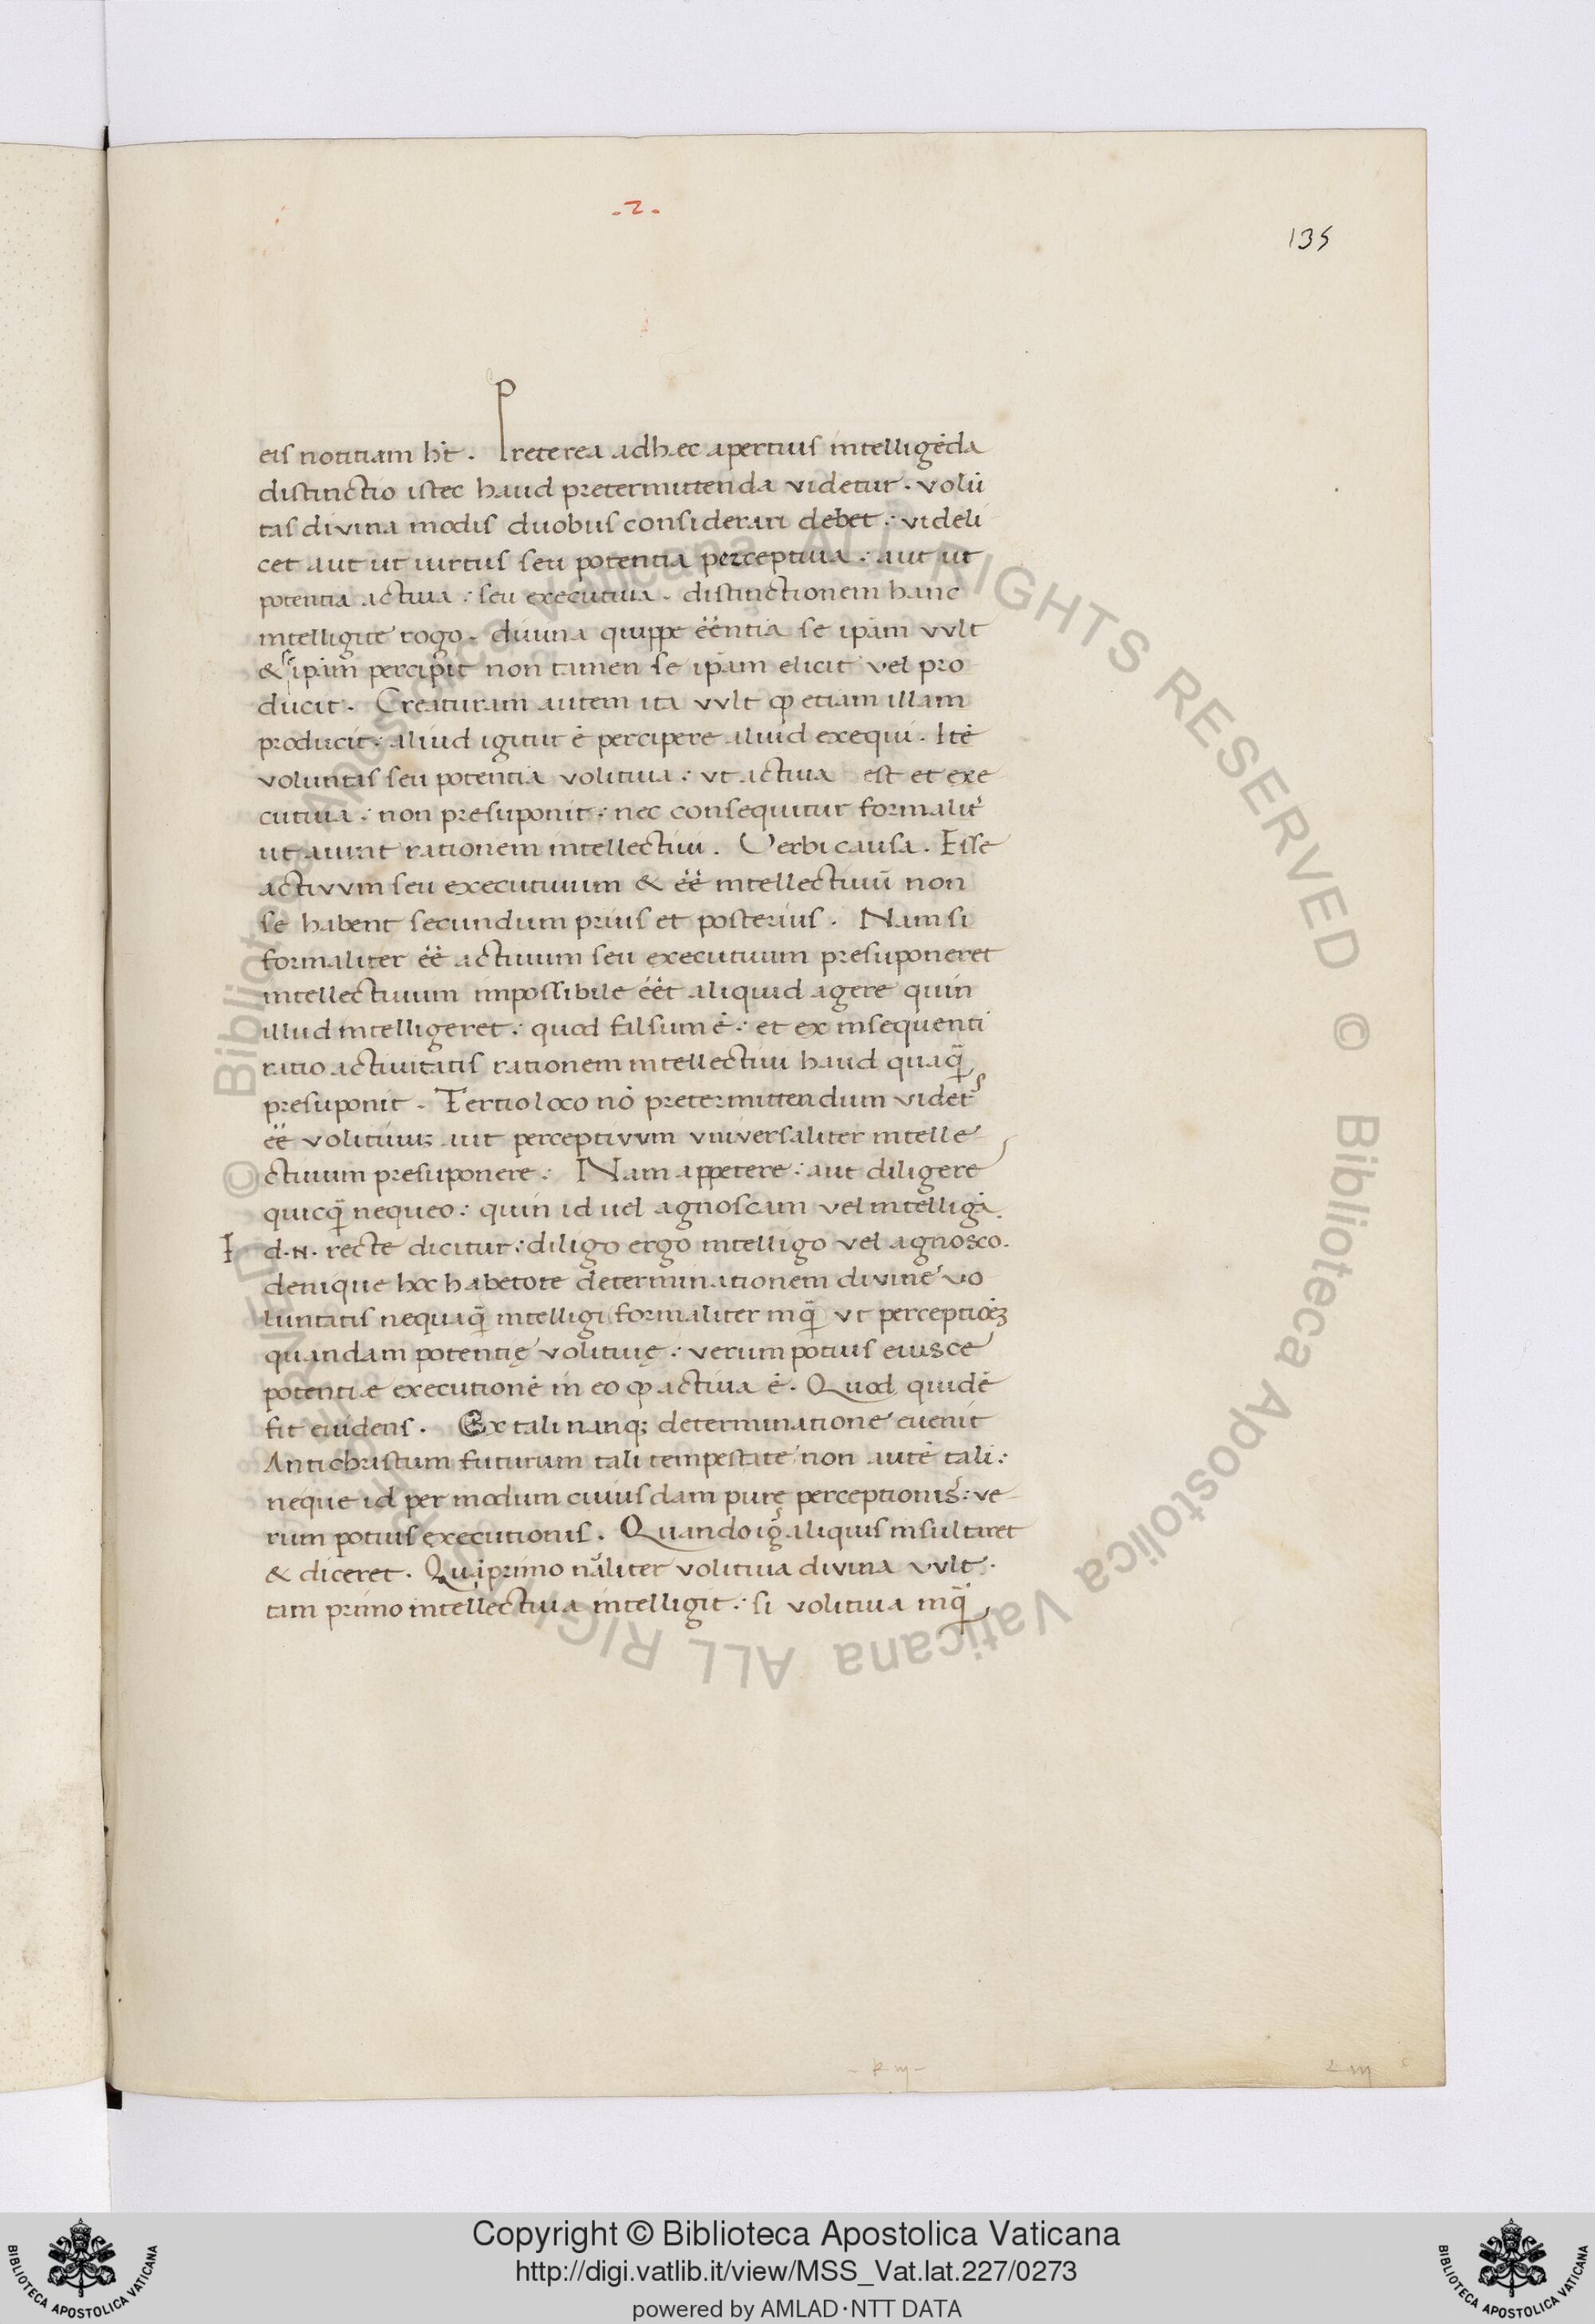 .2.
135
eis notitiam ht̄. Preterea adhec apertius intelligēda
distinctio istec haud pretermittenda videtur. volū
tas divina modis duobus considerari debet: videli
cet aut ut uirtus seu potentia perceptiua: aut ut
potentia actiua: seu executiua. distinctionem hanc
intelligite rogo. diuina quippe ēēntia se ipām vvlt
& se ipām percipit non tamen se ipām elicit vel pro
ducit. Creaturam autem ita vvlt ꝙ etiam illam
producit: aliud igitur ē percipere aliud exequi. Itē
voluntas seu potentia volitiua: vt actiua est et exe
cutiua: non presuponit: nec consequitur formalit̄
ut aiunt rationem intellectiui. Verbi causa. Esse
activvm seu executiuum & ēē intellectiuū non
se habent secundum prius et posterius. Nam si
formaliter ēē actiuum seu executiuum presuponeret
intellectiuum impossibile ēēt aliquid agere quin
illud intelligeret: quod falsum ē: et ex insequenti
ratio actiuitatis rationem intellectiui haud quaq̄
presuponit. Tertio loco nō pretermittendum videt᷑
ēē volitiuuꝫ aut perceptivvm vniversaliter intelle
ctiuum presuponere: Nam appetere: aut diligere
quicq̄ nequeo: quin id uel agnoscam vel intelligā.
I d.N. recte dicitur: diligo ergo intelligo vel agnosco.
denique hoc habetote determinationem divine vo
luntatis nequaq̄ intelligi formaliter inq̄ vt perceptiōeꝫ
quandam potentię volitiuę: verum potius eiusce
potentiæ executionē in eo ꝙ actiua ē. Quod quidē
fit euidens. Ex tali nanqꝫ determinatione euenit
Antichristum futurum tali tempestate non autē tali:
neque id per modum cuiusdam purę perceptionis: ve
rum potius executionis. Quando ig̃ aliquis insultaret
& diceret. Quā primo nāliter volitiua divina vvlt.
tam primo intellectiua intelligit: si volitiua inq̄
Copyright © Biblioteca Apostolica Vaticana
http://digi.vatlib.it/view/MSS_Vat.lat.227/0273
powered by AMLAD·NTT DATA